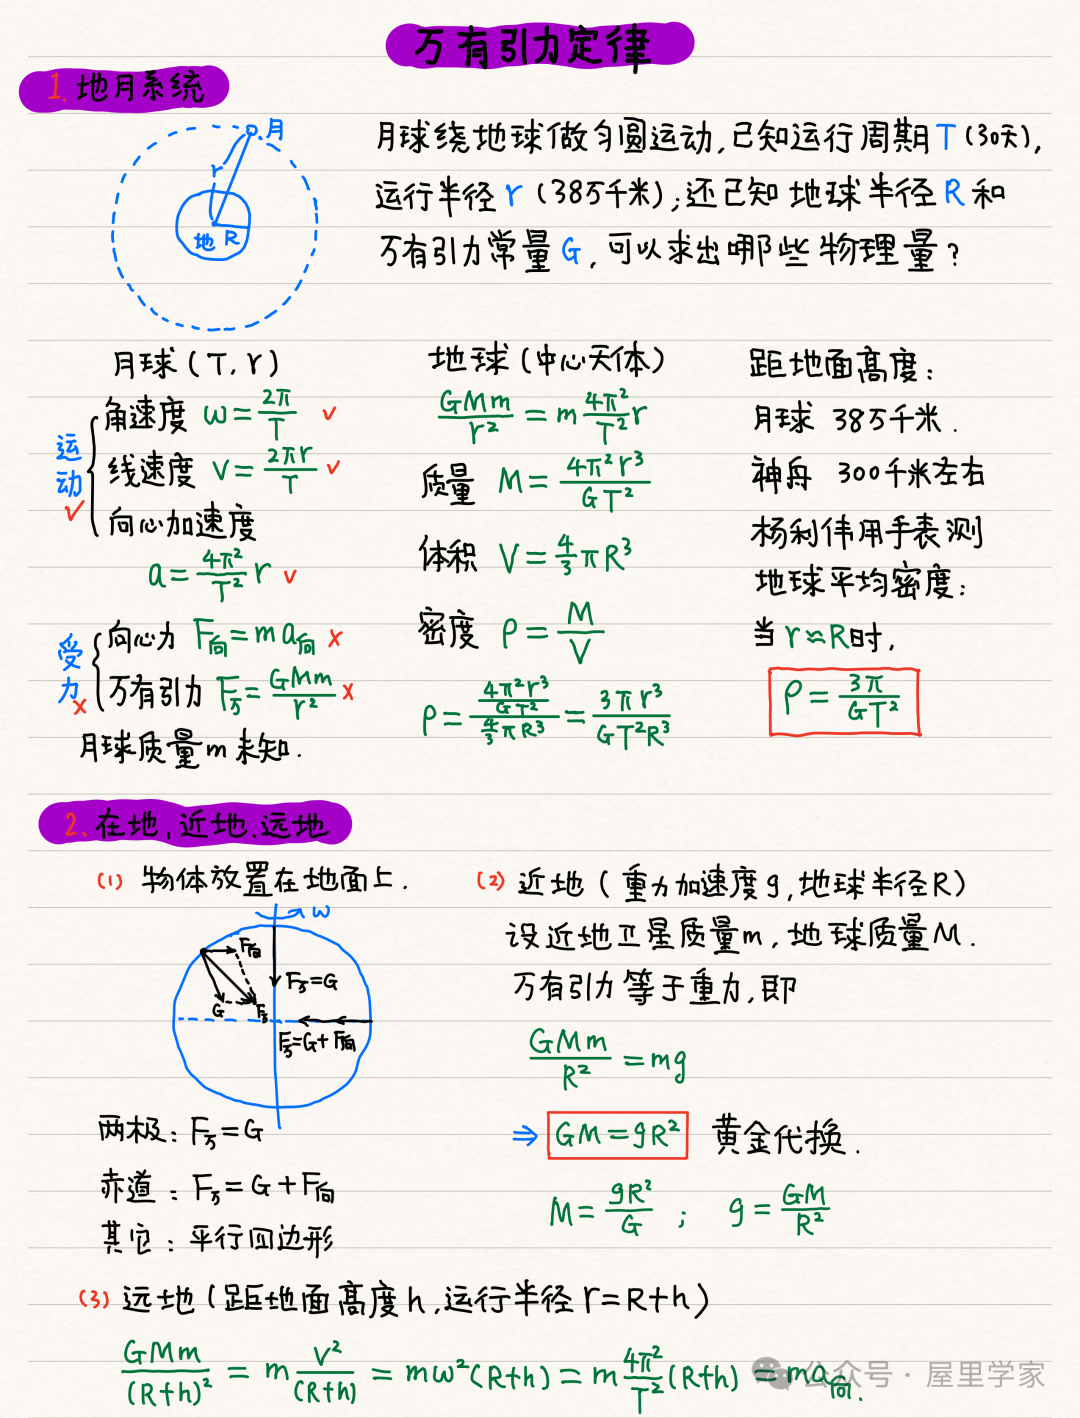 万有引力定律
1. 地月系统
月
r
地 R
月球绕地球做匀圆运动,已知运行周期T(30天),
运行半径r(38万千米);还已知地球半径R和
万有引力常量G,可以求出哪些物理量?
月球(T,r)
运动✓
角速度 ω=2π/T ✓
线速度 V=2πr/T ✓
向心加速度
a=4π²/T² r ✓
受力×
向心力 F向=ma向 ×
万有引力 F万=GMm/r² ×
月球质量m未知.
地球(中心天体)
GMm/r²=m4π²/T² r
质量 M=4π²r³/GT²
体积 V=4/3πR³
密度 ρ=M/V
ρ=(4π²r³/GT²)/(4/3πR³)=3πr³/GT²R³
距地面高度:
月球 38万千米.
神舟 300千米左右
杨利伟用手表测
地球平均密度:
当r≈R时,
ρ=3π/GT²
2. 在地,近地.远地
(1) 物体放置在地面上.
ω
F向
F万=G
G F万
F万=G+F向
两极: F万=G
赤道: F万=G+F向
其它: 平行四边形
(2) 近地(重力加速度g,地球半径R)
设近地卫星质量m,地球质量M.
万有引力等于重力,即
GMm/R²=mg
⇒ GM=gR² 黄金代换.
M=gR²/G ; g=GM/R²
(3) 远地(距地面高度h,运行半径r=R+h)
GMm/(R+h)²=mV²/(R+h)=mω²(R+h)=m4π²/T²(R+h)=ma向.
公众号·屋里学家